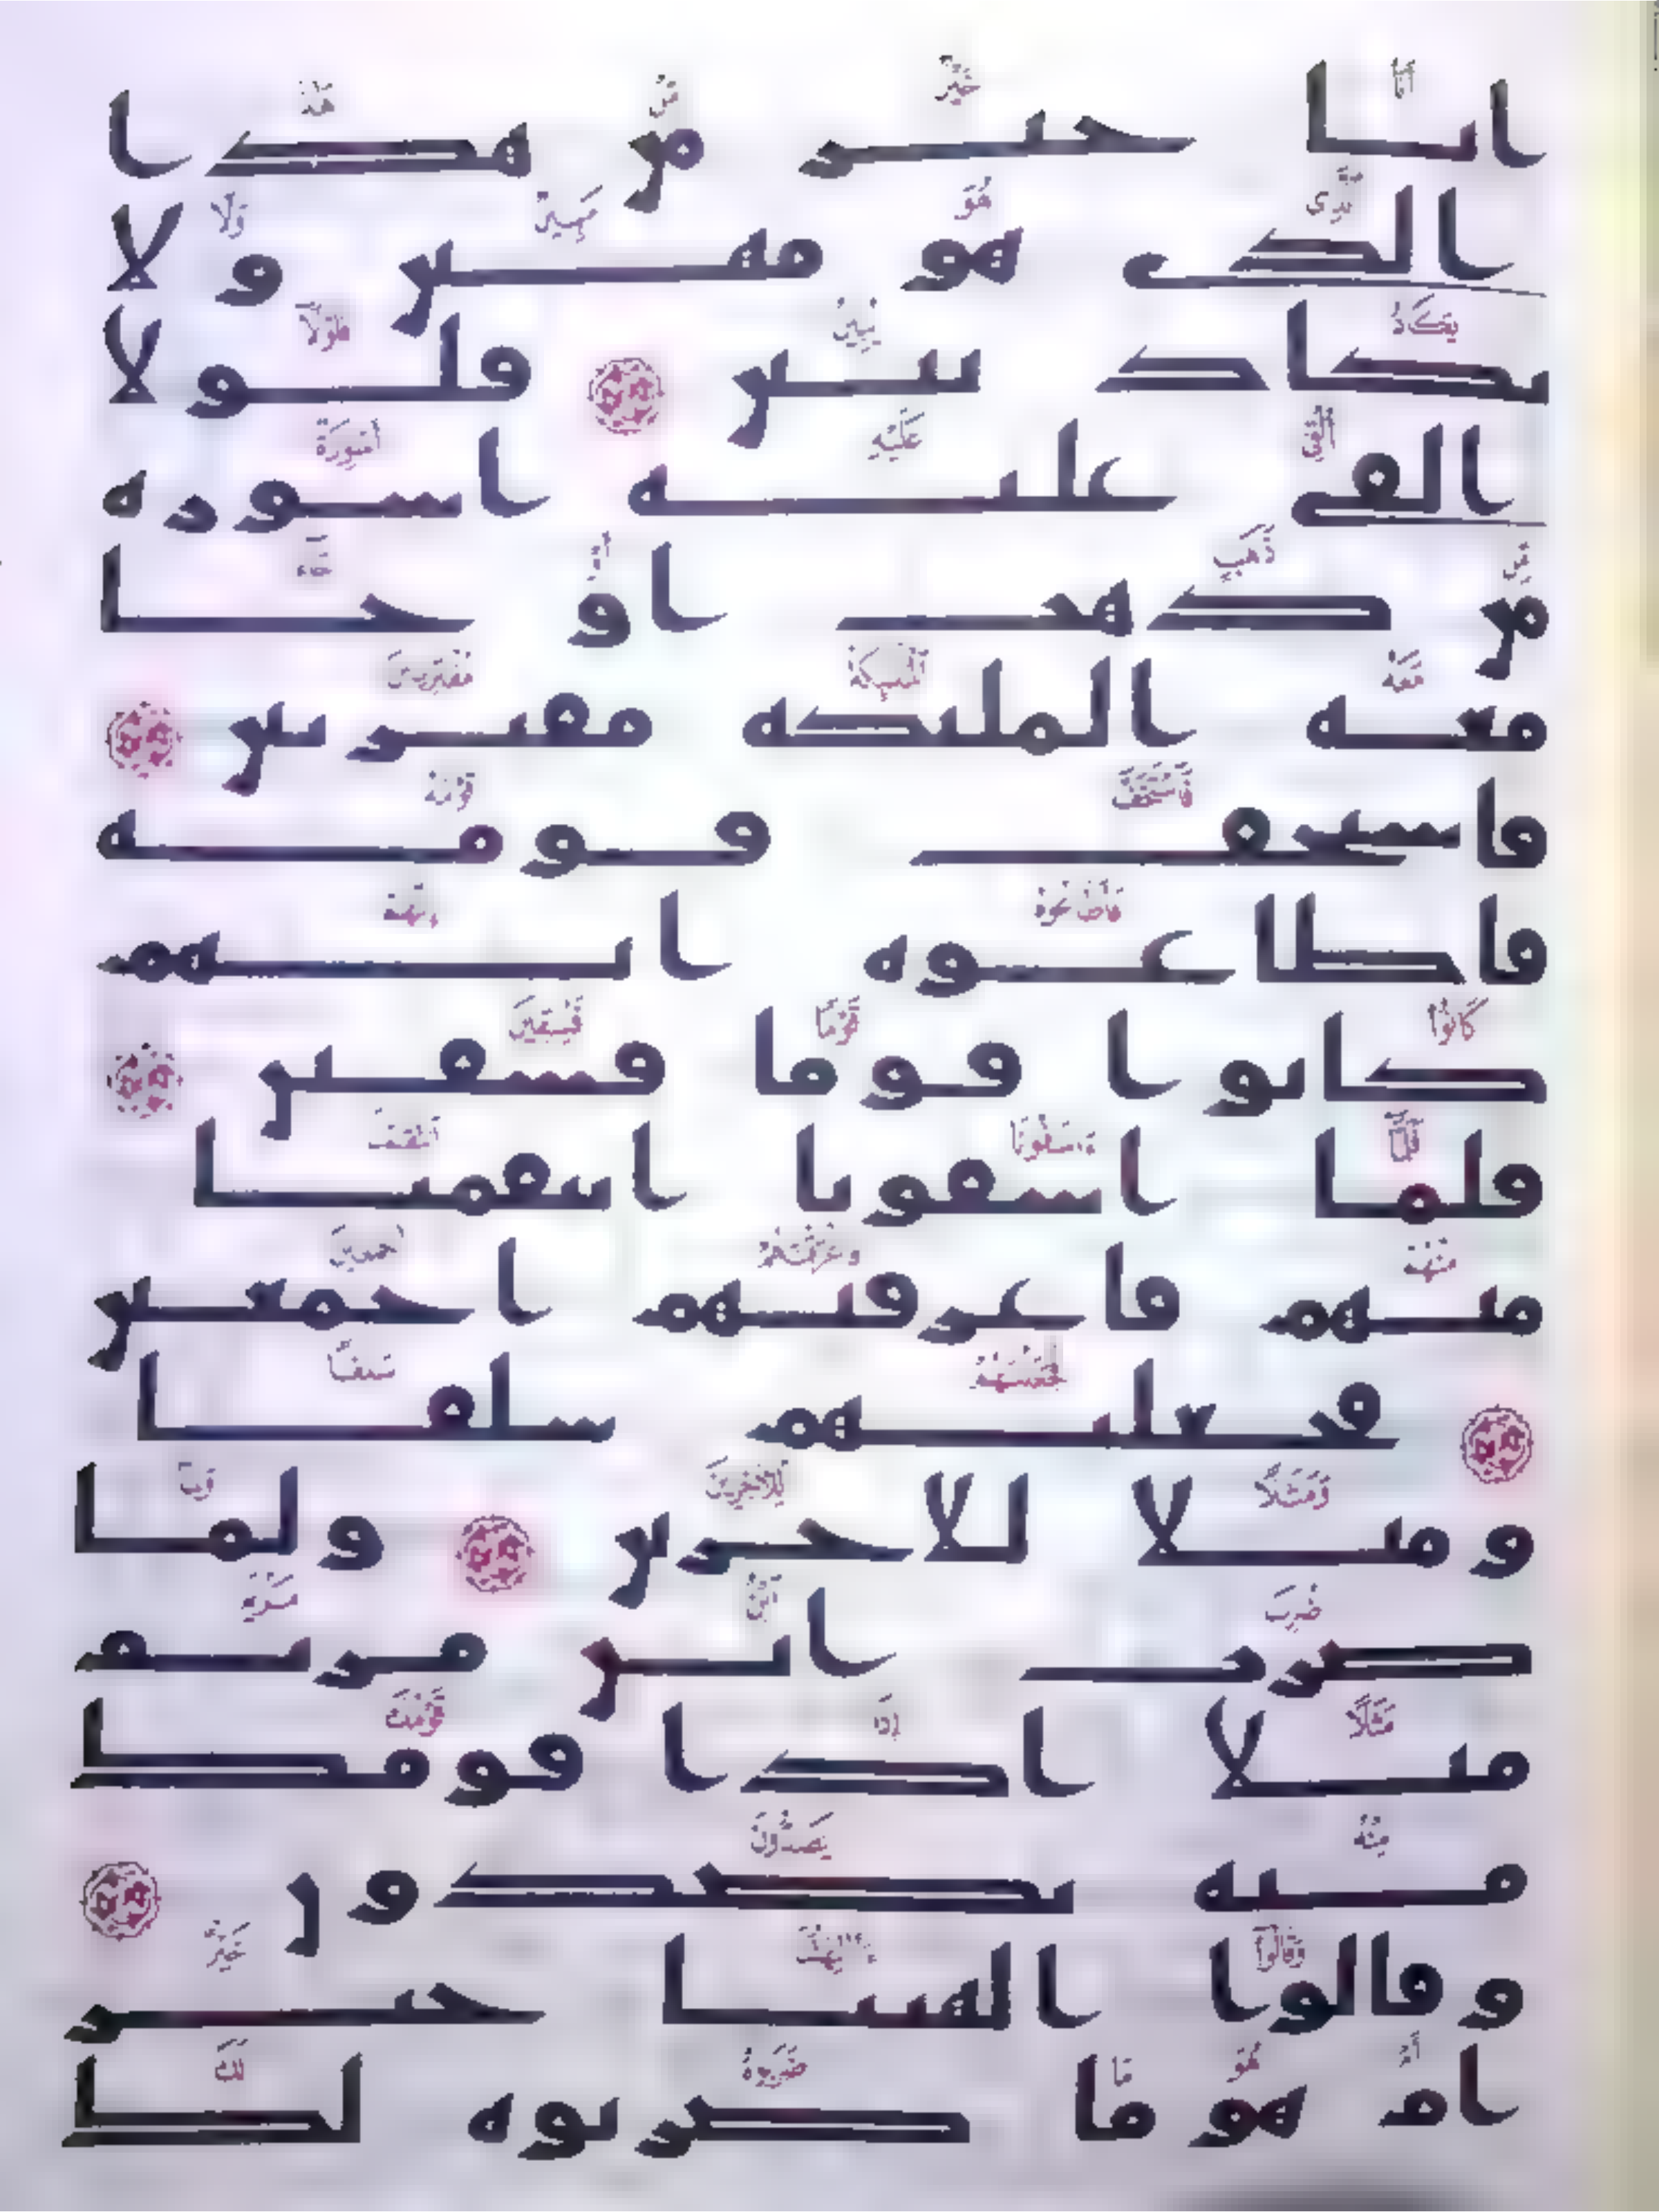 انا خير من هذا
الذى هو مهين ولا
يكاد يبين فلولا
القى عليه اسورة
من ذهب او جا
معه الملئكة مقترنين
فاستخف قومه
فاطاعوه انهم
كانوا قوما فسقين
فلما اسفونا انتقمنا
منهم فاغرقنهم اجمعين
فجعلنهم سلفا
ومثلا للاخرين ولما
ضرب ابن مريم
مثلا اذا قومك
منه يصدون
وقالوا الهتنا خير
ام هو ما ضربوه لك